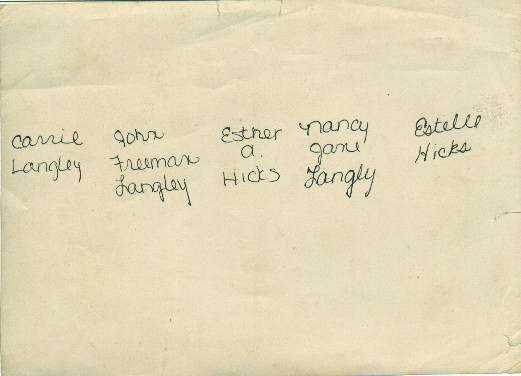 Carrie John Esther Nancy Estelle
Langley Freeman A. Jane Hicks
Langley Hicks Langly